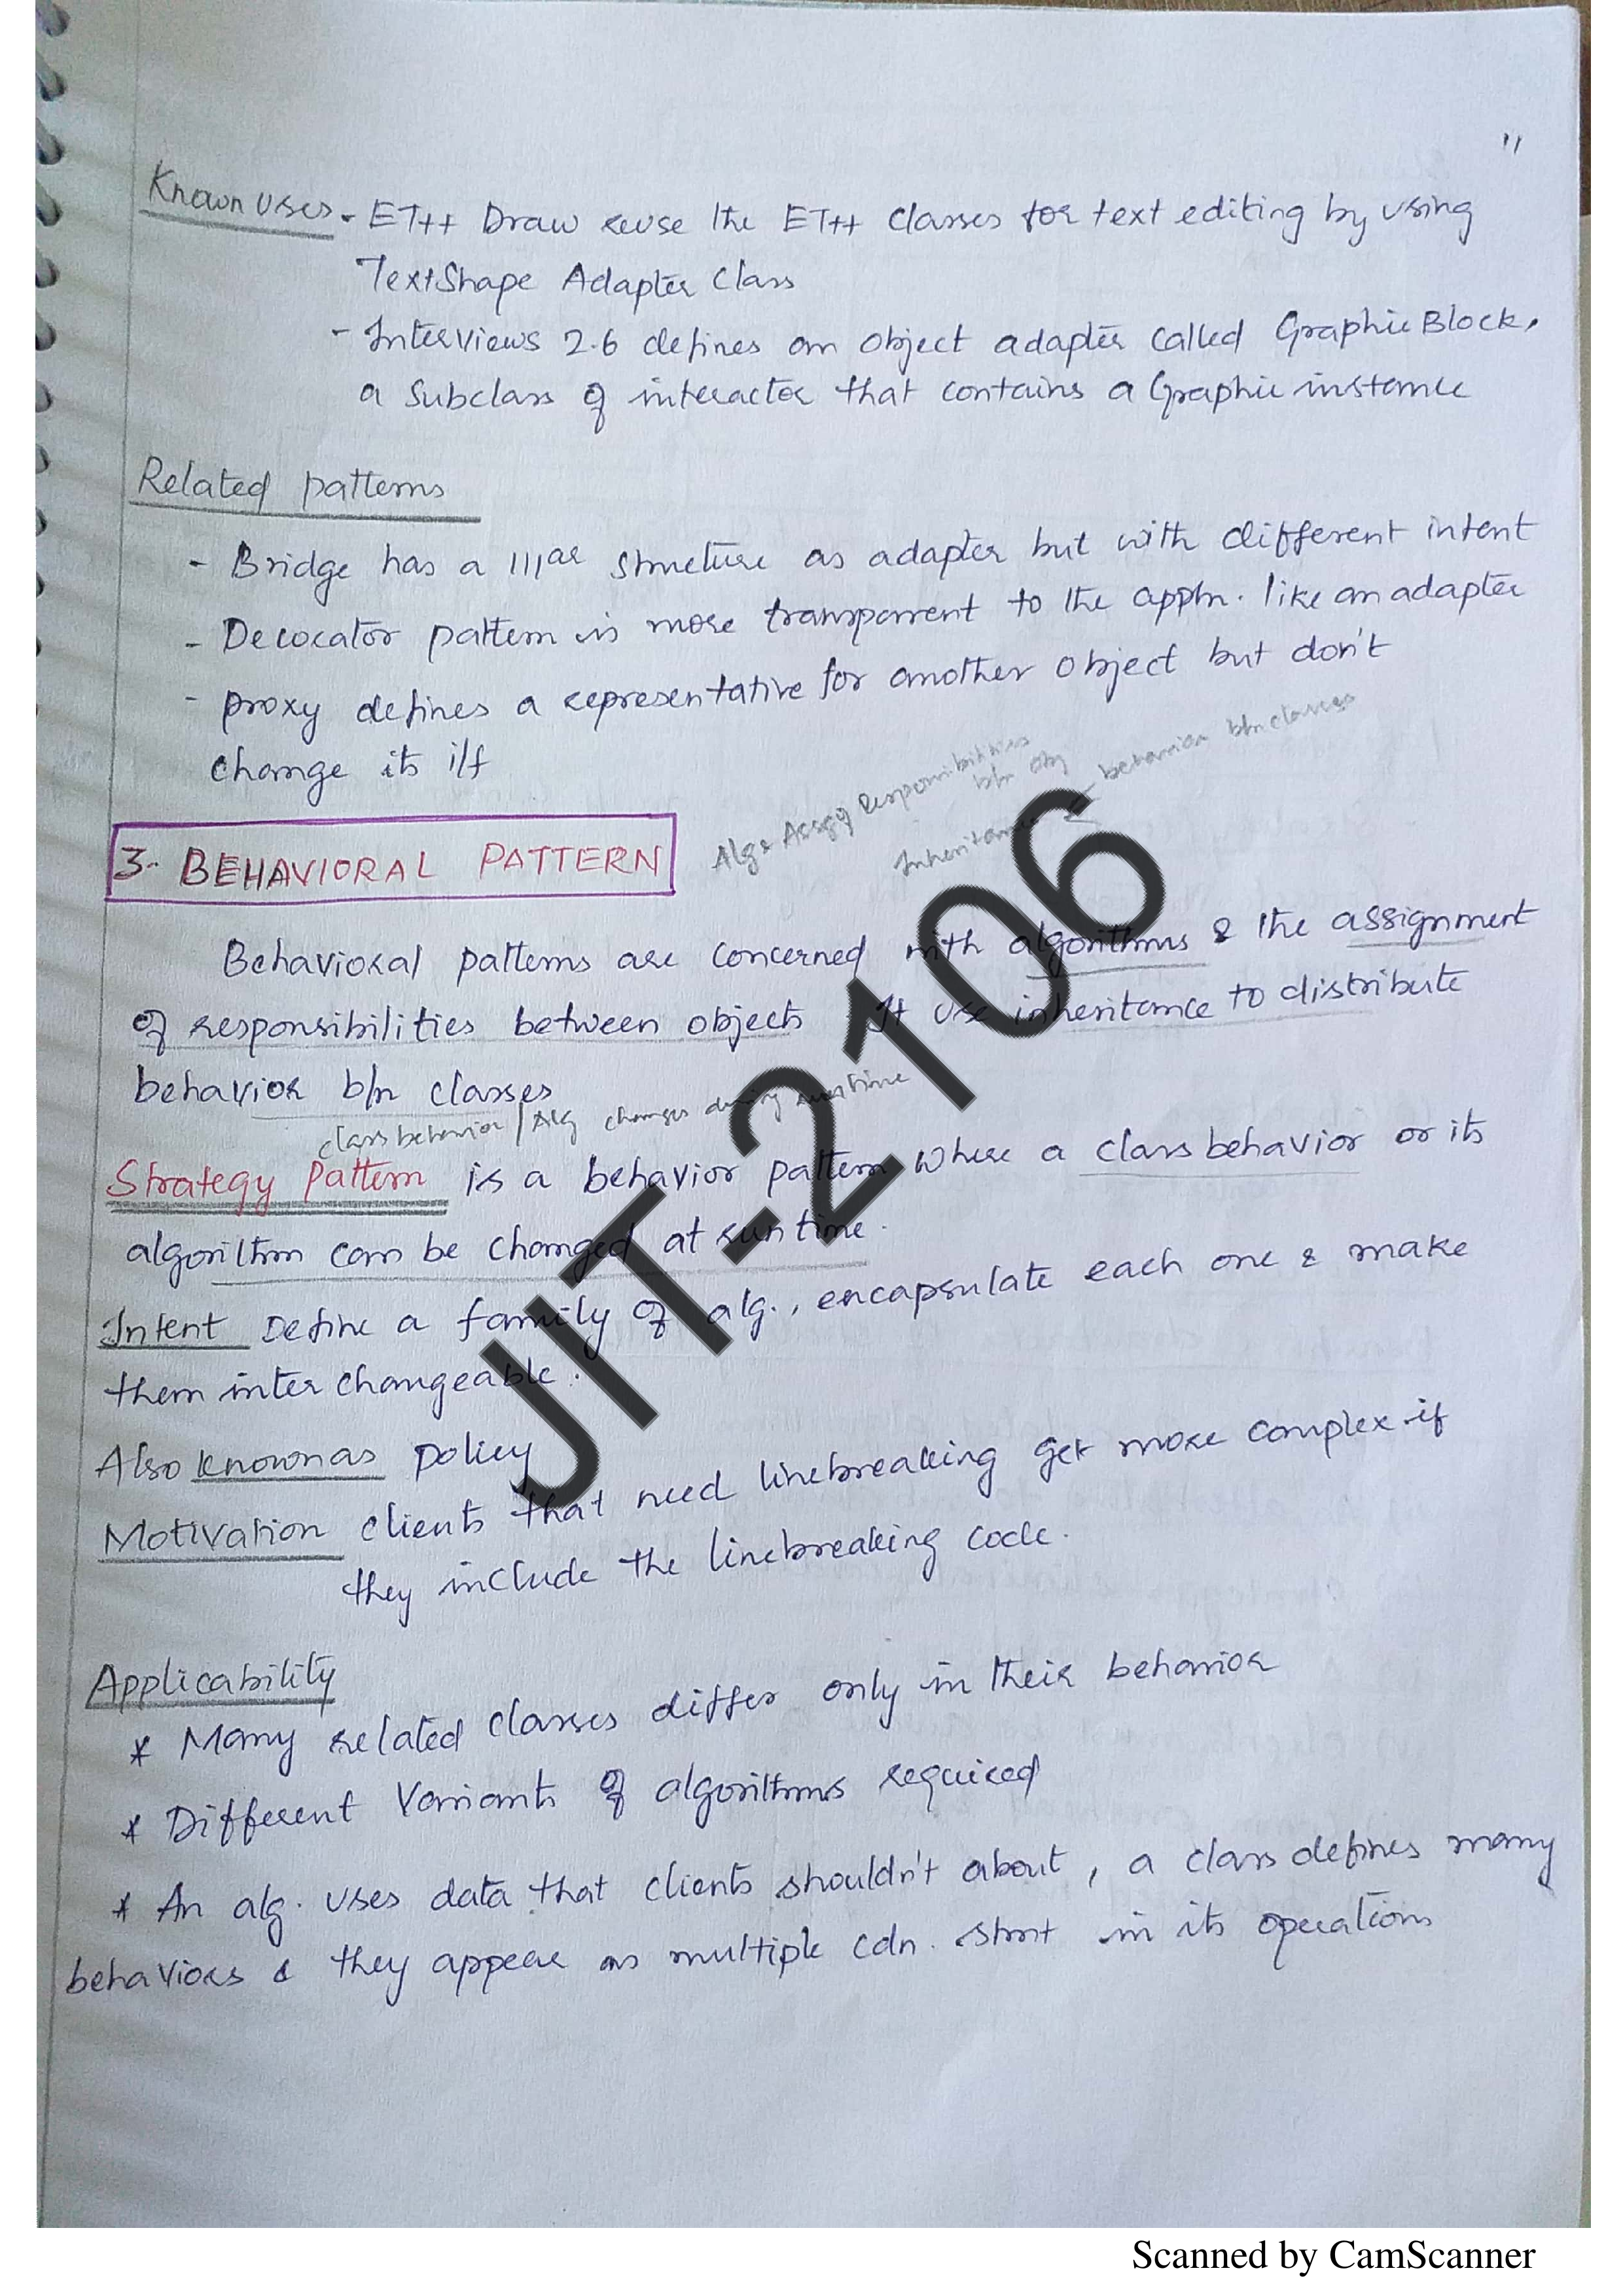 11
Known Uses - ET++ Draw reuse the ET++ Classes for text editing by using
TextShape Adapter Class
- InterViews 2.6 defines an object adapter called GraphicBlock,
a Subclass of interactor that contains a Graphic instance
Related patterns
- Bridge has a lllar structure as adapter but with different intent
- Decorator pattern is more transparent to the appln. like an adapter
- proxy defines a representative for another object but don't
change its i/f
Algs Assg responsibilities
b/n obj
Inheritance behavior b/n classes
3. BEHAVIORAL PATTERN
Behavioral patterns are concerned with algorithms & the assignment
of responsibilities between objects It use inheritance to distribute
behavior b/n classes
class behavior / Alg changes during runtime
Strategy pattern is a behavior pattern where a class behavior or its
algorithm can be changed at run time.
Intent Define a family of alg., encapsulate each one & make
them inter changeable.
Also known as policy
Motivation clients that need linebreaking get more complex if
they include the linebreaking code.
Applicability
* Many related classes differ only in their behavior
* Different Variants of algorithms required
* An alg. uses data that clients shouldn't about, a class defines many
behaviors & they appear as multiple cdn. stmt in its operations
JIT-2106
Scanned by CamScanner